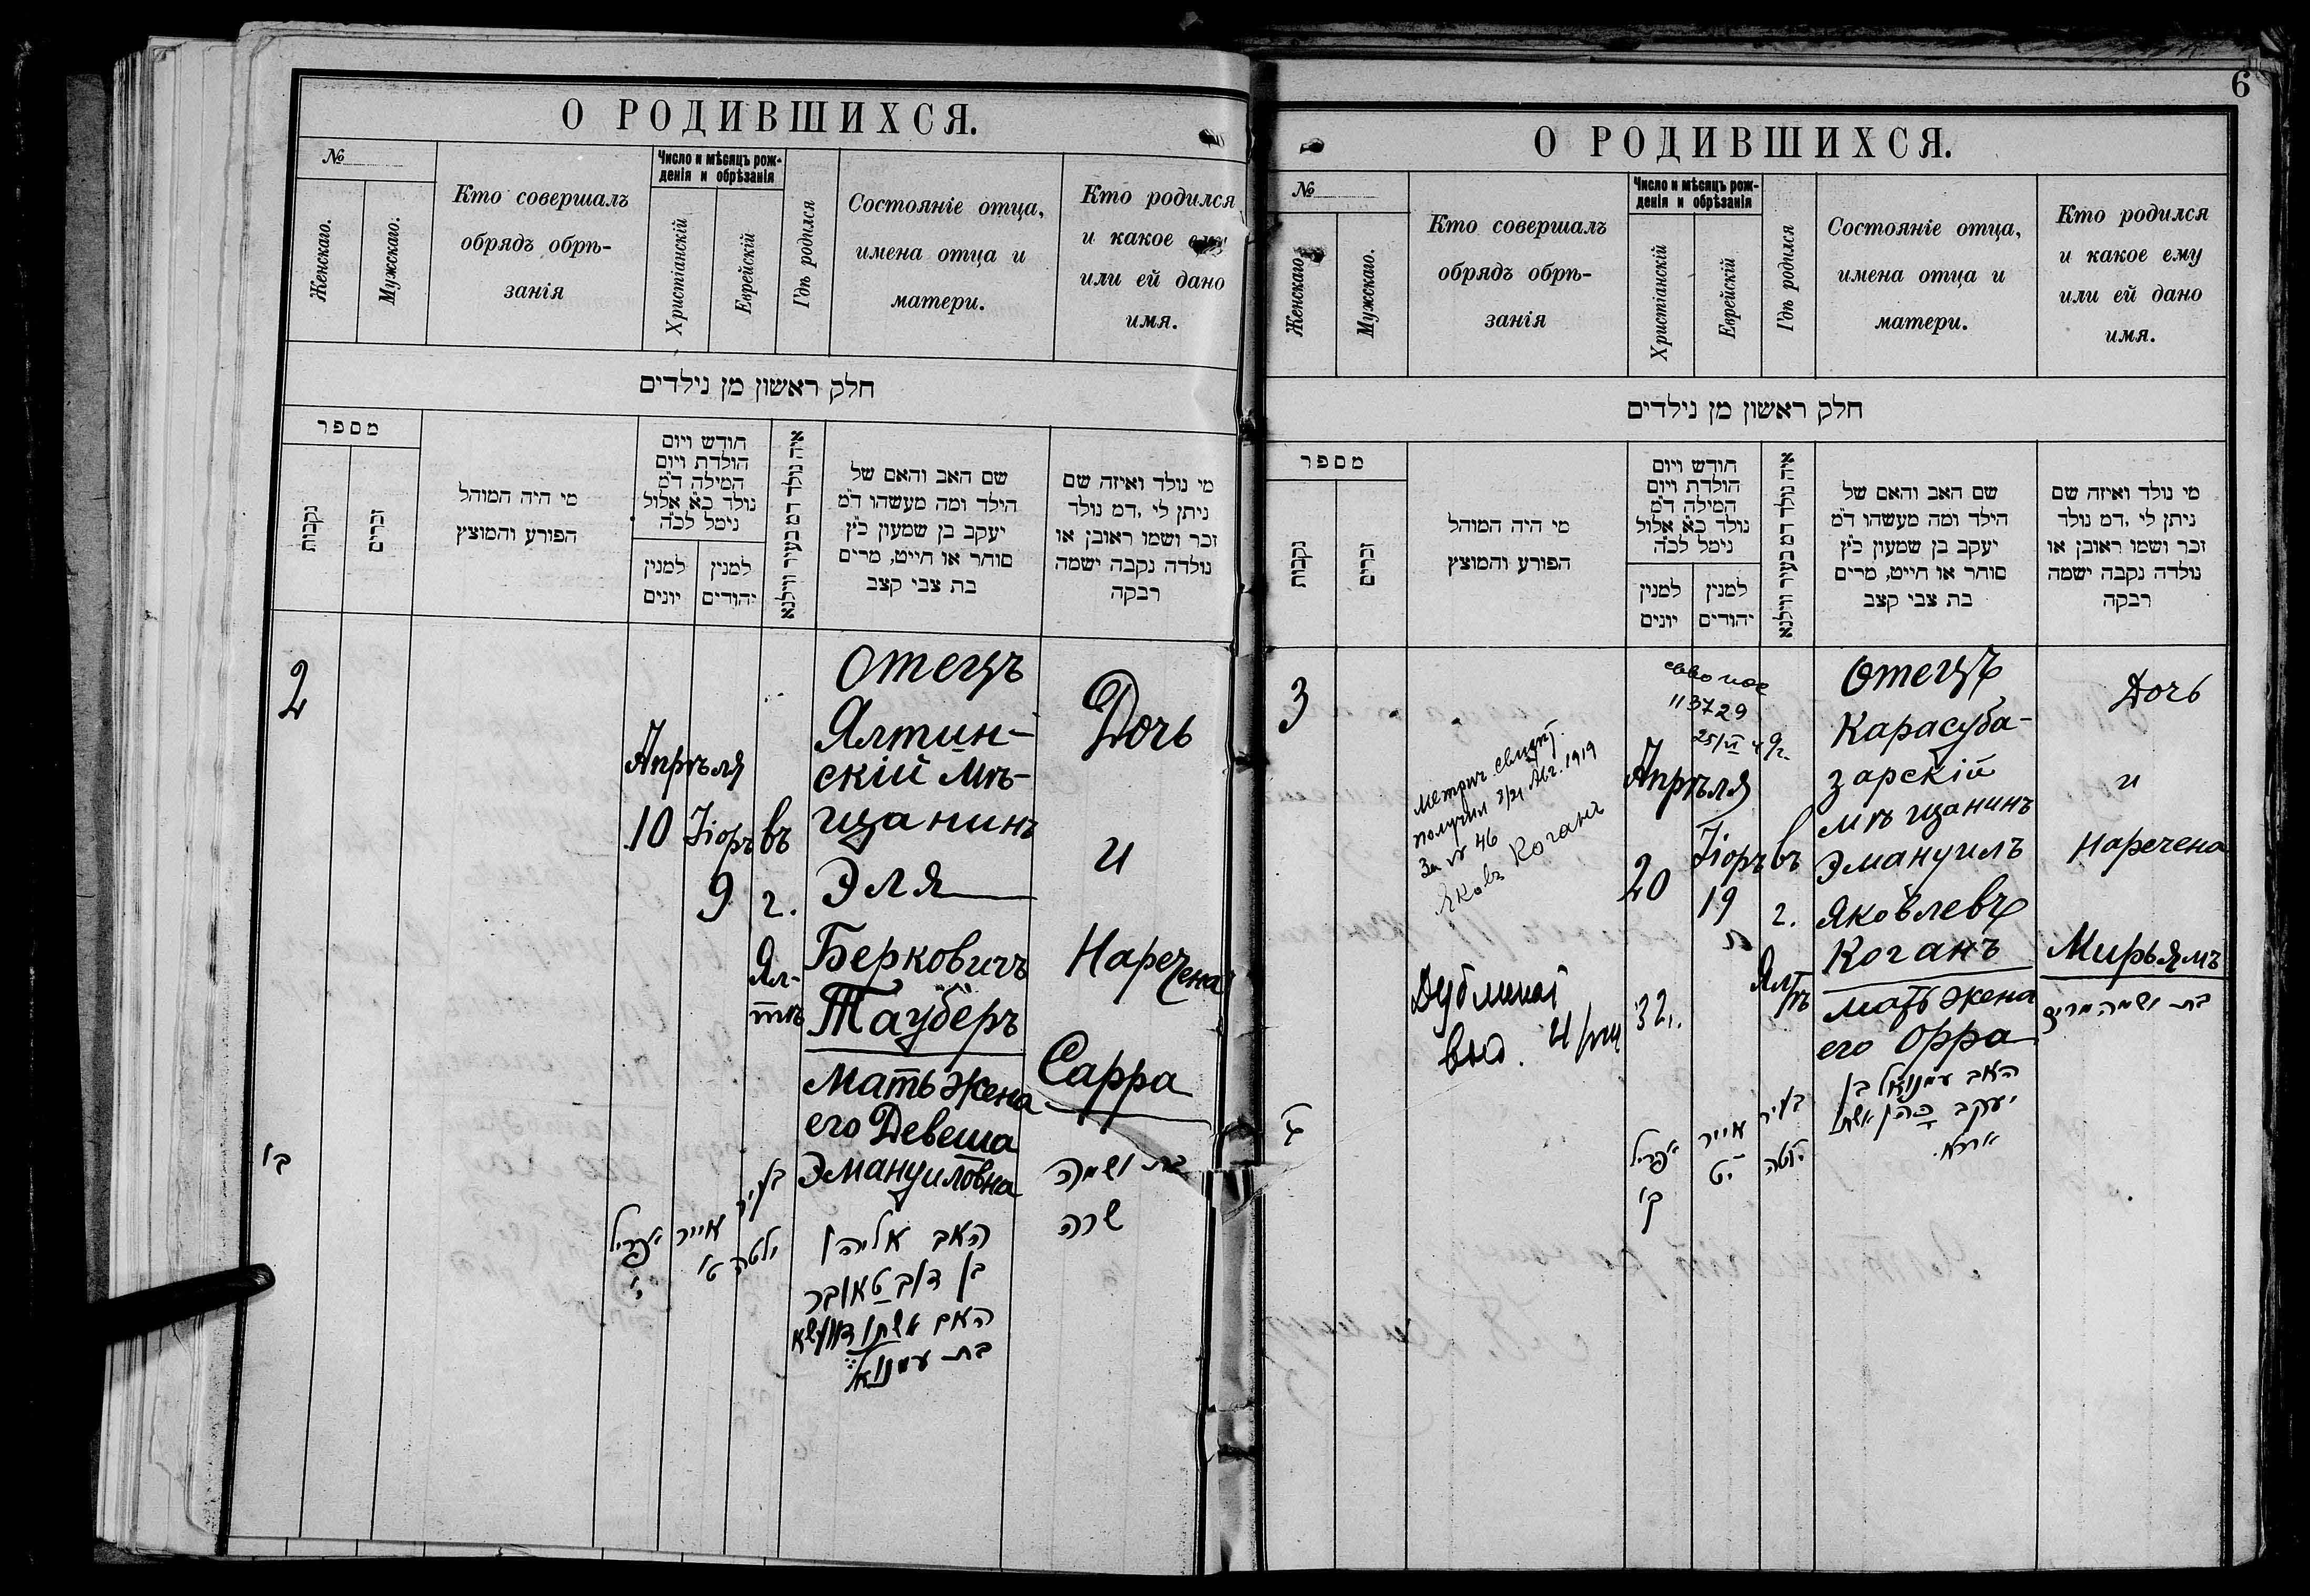 О РОДИВШИХСЯ.
№
Женскаго.
Мужскаго.
Кто совершалъ
обрядъ обрѣ-
занія
Число и мѣсяцъ рож-
денія и обрѣзанія
Христіанскій
Еврейскій
Гдѣ родился
Состояніе отца,
имена отца и
матери.
Кто родился
и какое ему
или ей дано
имя.
חלק ראשון מן נילדים
מספר
נקבות
זכרים
מי היה המוהל
הפורע והמוצץ
חודש ויום
הולדת ויום
המילה ד״מ
נולד כ״א אלול
נימל לכ״ה
למנין
יונים
למנין
יהודים
איה נולד דמ בעיר ווילנא
שם האב והאם של
הילד ומה מעשהו ד״מ
יעקב בן שמעון כ״ץ
סוחר או חייט, מרים
בת צבי קצב
מי נולד ואיזה שם
ניתן לי ,דמ נולד
זכר ושמו ראובן או
נולדה נקבה ישמה
רבקה
2
Апрѣля
10
Іюръ
9
въ
г.
Ял-
тѣ
Отецъ
Ялтин-
скій мѣ-
щанинъ
Эля
Берковичъ
Тауберъ
Мать жена
его Девеша
Эмануиловна
Дочь
и
Наречена
Сарра
ב׳
אפריל
י׳
אייר
ט׳
בעיר
ילטה
האב אליהו
בן דוב טאובר
האם אשתו דוועשא
בת עמנואל
בת ושמה
שרה
6
О РОДИВШИХСЯ.
№
Женскаго.
Мужскаго.
Кто совершалъ
обрядъ обрѣ-
занія
Число и мѣсяцъ рож-
денія и обрѣзанія
Христіанскій
Еврейскій
Гдѣ родился
Состояніе отца,
имена отца и
матери.
Кто родился
и какое ему
или ей дано
имя.
חלק ראשון מן נילדים
מספר
נקבות
זכרים
מי היה המוהל
הפורע והמוצץ
חודש ויום
הולדת ויום
המילה ד״מ
נולד כ״א אלול
נימל לכ״ה
למנין
יונים
למנין
יהודים
איה נולד דמ בעיר ווילנא
שם האב והאם של
הילד ומה מעשהו ד״מ
יעקב בן שמעון כ״ץ
סוחר או חייט, מרים
בת צבי קצב
מי נולד ואיזה שם
ניתן לי ,דמ נולד
זכר ושמו ראובן או
נולדה נקבה ישמה
רבקה
3
Метрич. свидѣт.
получил 8/21 Авг. 1919
За № 46
Яковъ Коганъ
Дубликат
выд.
32 г.
113729
25/VI 49г.
Апрѣля
20
Іюръ
19
въ
г.
Ял
тѣ
Отецъ
Карасуба-
зарскій
мѣщанинъ
Эмануилъ
Яковлевъ
Коганъ
мать жена
его Орра
Дочь
и
Наречена
Мирьямъ
בת ושמה מרים
ג׳
אפריל
כ׳
אייר
י״ט
בעיר
ילטה
האב עמנואל בן
יעקב כהן אשתו
אררא